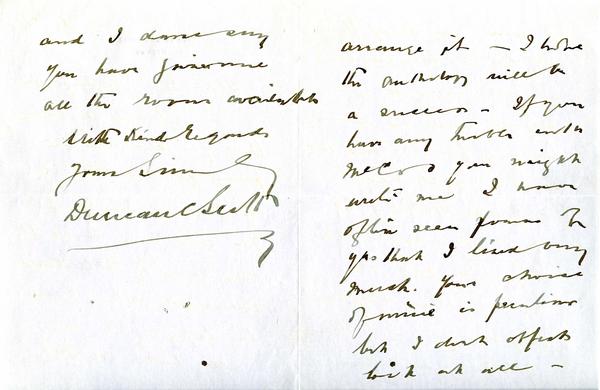 arrange it — I hope
the anthology will be
a success — If you
have any trouble with
you might
write me I have
often seen poems of
yrs that I liked very
much. Your choice
of mine is peculiar
but I don't object
to it at all —
and I dare say
you have given me
all the room available
With kind regards
Yours Sincerely
Duncan C Scott